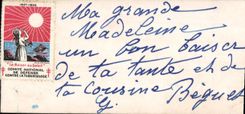 1927-1928
"Le Baiser au Soleil"
COMITÉ NATIONAL
DE DÉFENSE
CONTRE LA TUBERCULOSE
Ma grande
Madeleine
un bon baiser
de ta tante et de
ta cousine
G. Beguet